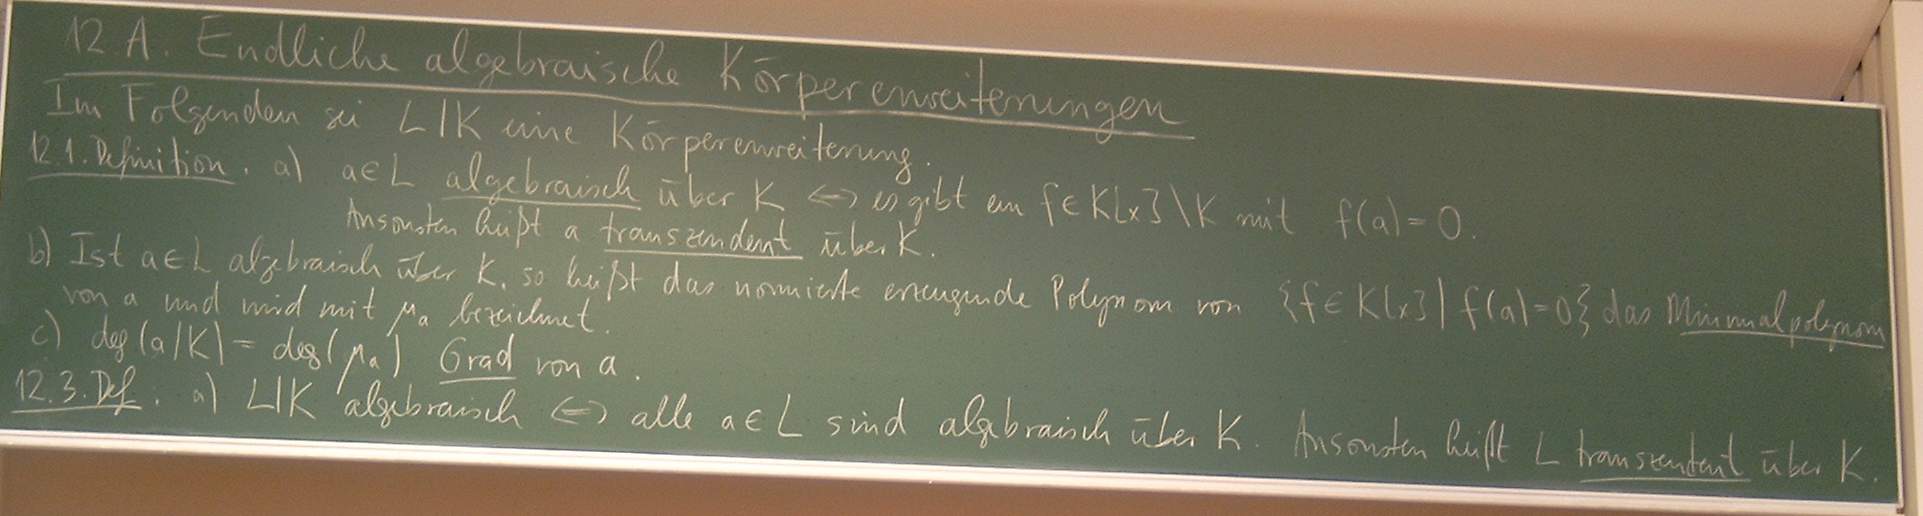 12 A. Endliche algebraische Körpererweiterungen
Im Folgenden sei L|K eine Körpererweiterung.
12.1. Definition. a) a∈L algebraisch über K ⇔ es gibt ein f∈K[x]\K mit f(a)=0.
Ansonsten heißt a transzendent über K.
b) Ist a∈L algebraisch über K, so heißt das normierte erzeugende Polynom von {f∈K[x] | f(a)=0} das Minimalpolynom
von a und wird mit μₐ bezeichnet.
c) deg(a/K) = deg(μₐ) Grad von a.
12.3. Def. a) L|K algebraisch ⇔ alle a∈L sind algebraisch über K. Ansonsten heißt L transzendent über K.